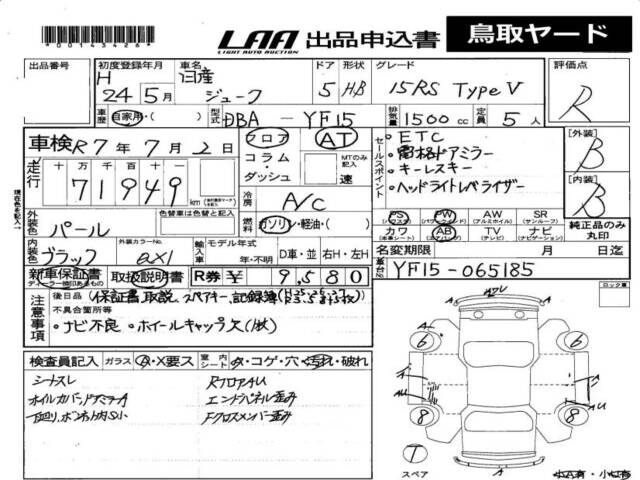 *00143426*
LAA 出品申込書 鳥取ヤード
LIGHT AUTO AUCTION
出品番号 初度登録年月 車名 ドア 形状 グレード 評価点
H 24年 5月 日産 ジューク 5 HB 15RS Type V R
車歴 自家用・( ) 型式 DBA-YF15 排気量 1500cc 定員 5人
車検 R7年7月2日 フロア AT
コラム・ダッシュ MTのみ記入 速
セールスポイント
・ETC
・電格ドアミラー
・キーレスキー
・ヘッドライトレベライザー
【外装】 B
【内装】 B
走行 十万千百十一
71949 km
冷房 A/C
外装色 パール 色替車は色替と記入 燃料 ガソリン・軽油・( )
PS (パワステ) PW (パワーウィンドウ) AW (アルミホイル) SR (サンルーフ)
カワ (本革シート) AB (エアバック) TV (テレビ) ナビ (ナビゲーション)
純正品のみ丸印
内装色 ブラック 外装カラーNo. QX1 輸入車 モデル年式 年・不明 D車・並 右H・左H
名変期限 月 日迄
新車保証書 取扱説明書 R券 ¥ 9,580
ディーラー捺印あるもの
車台No YF15-065185
現在色を記入
注意事項
後日品 (保証書、取説、スペアキー、記録簿
不具合箇所等
・ナビ不良 ・ホイールキャップ欠
ロック車
検査員記入 ガラス A・X要ス 室内シート A・コゲ・穴・汚れ・破れ
シートスレ RフロアAU
エンドパネル歪み
Fクロスメンバー歪み
AU
A
6 6
A A
AU AU
8 8
T
スペア